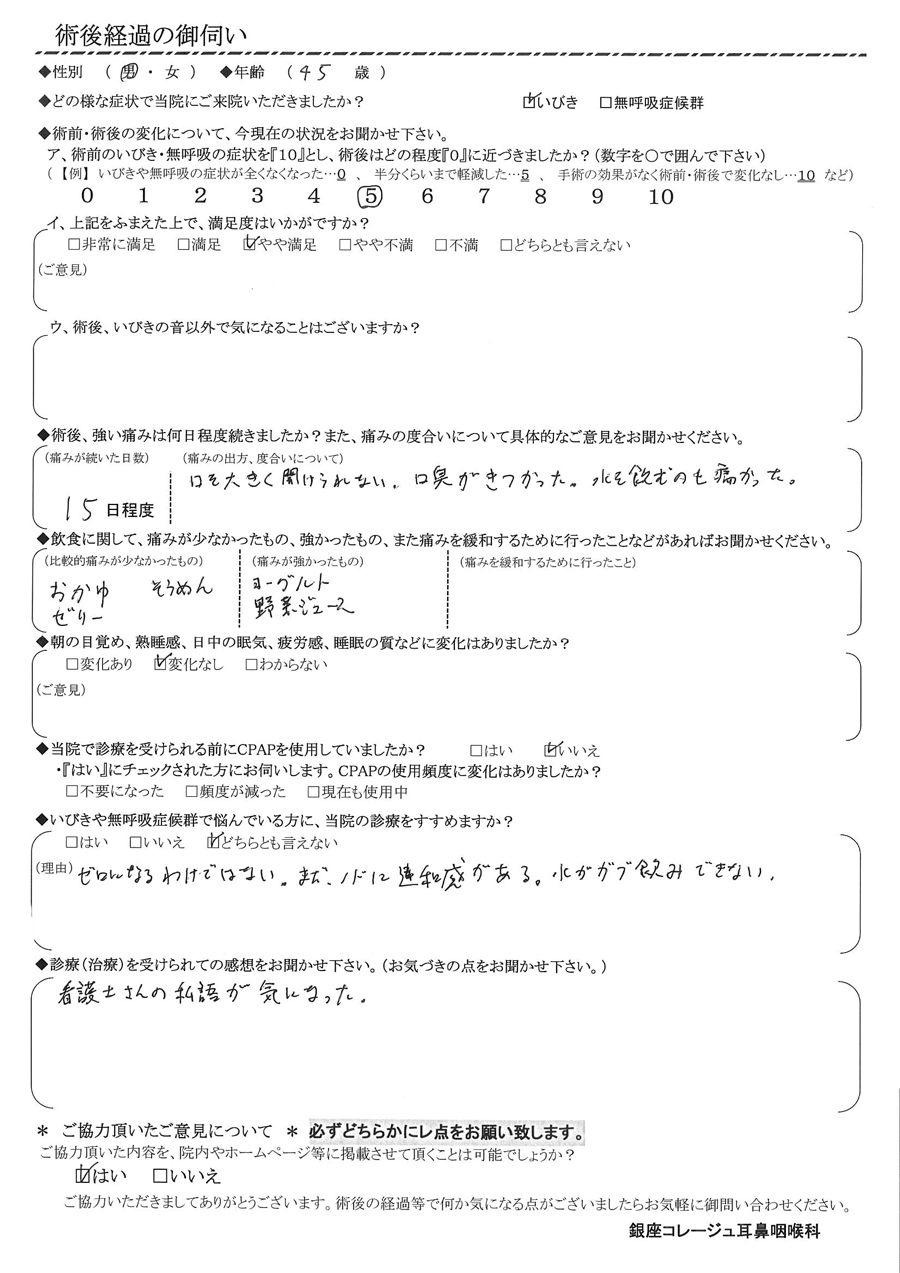 術後経過の御伺い
◆性別 （男・女） ◆年齢 （45 歳）
◆どの様な症状で当院にご来院いただきましたか？ ☑いびき □無呼吸症候群
◆術前・術後の変化について、今現在の状況をお聞かせ下さい。
ア、術前のいびき・無呼吸の症状を『10』とし、術後はどの程度『0』に近づきましたか？（数字を〇で囲んで下さい）
（【例】いびきや無呼吸の症状が全くなくなった…0 、 半分くらいまで軽減した…5 、 手術の効果がなく術前・術後で変化なし…10 など）
0 1 2 3 4 5 6 7 8 9 10
イ、上記をふまえた上で、満足度はいかがですか？
□非常に満足 □満足 ☑やや満足 □やや不満 □不満 □どちらとも言えない
（ご意見）
ウ、術後、いびきの音以外で気になることはございますか？
◆術後、強い痛みは何日程度続きましたか？また、痛みの度合いについて具体的なご意見をお聞かせください。
（痛みが続いた日数） （痛みの出方、度合いについて）
口を大きく開けられない。口臭がきつかった。水を飲むのも痛かった。
15 日程度
◆飲食に関して、痛みが少なかったもの、強かったもの、また痛みを緩和するために行ったことなどがあればお聞かせください。
（比較的痛みが少なかったもの） （痛みが強かったもの） （痛みを緩和するために行ったこと）
おかゆ そうめん ヨーグルト
ゼリー 野菜ジュース
◆朝の目覚め、熟睡感、日中の眠気、疲労感、睡眠の質などに変化はありましたか？
□変化あり ☑変化なし □わからない
（ご意見）
◆当院で診療を受けられる前にCPAPを使用していましたか？ □はい ☑いいえ
・『はい』にチェックされた方にお伺いします。CPAPの使用頻度に変化はありましたか？
□不要になった □頻度が減った □現在も使用中
◆いびきや無呼吸症候群で悩んでいる方に、当院の診療をすすめますか？
□はい □いいえ ☑どちらとも言えない
（理由） ゼロになるわけではない。まだ、ノドに違和感がある。水がガブ飲みできない。
◆診療（治療）を受けられての感想をお聞かせ下さい。（お気づきの点をお聞かせ下さい。）
看護士さんの私語が気になった。
＊ ご協力頂いたご意見について ＊ 必ずどちらかにレ点をお願い致します。
ご協力頂いた内容を、院内やホームページ等に掲載させて頂くことは可能でしょうか？
☑はい □いいえ
ご協力いただきましてありがとうございます。術後の経過等で何か気になる点がございましたらお気軽に御問い合わせください。
銀座コレージュ耳鼻咽喉科